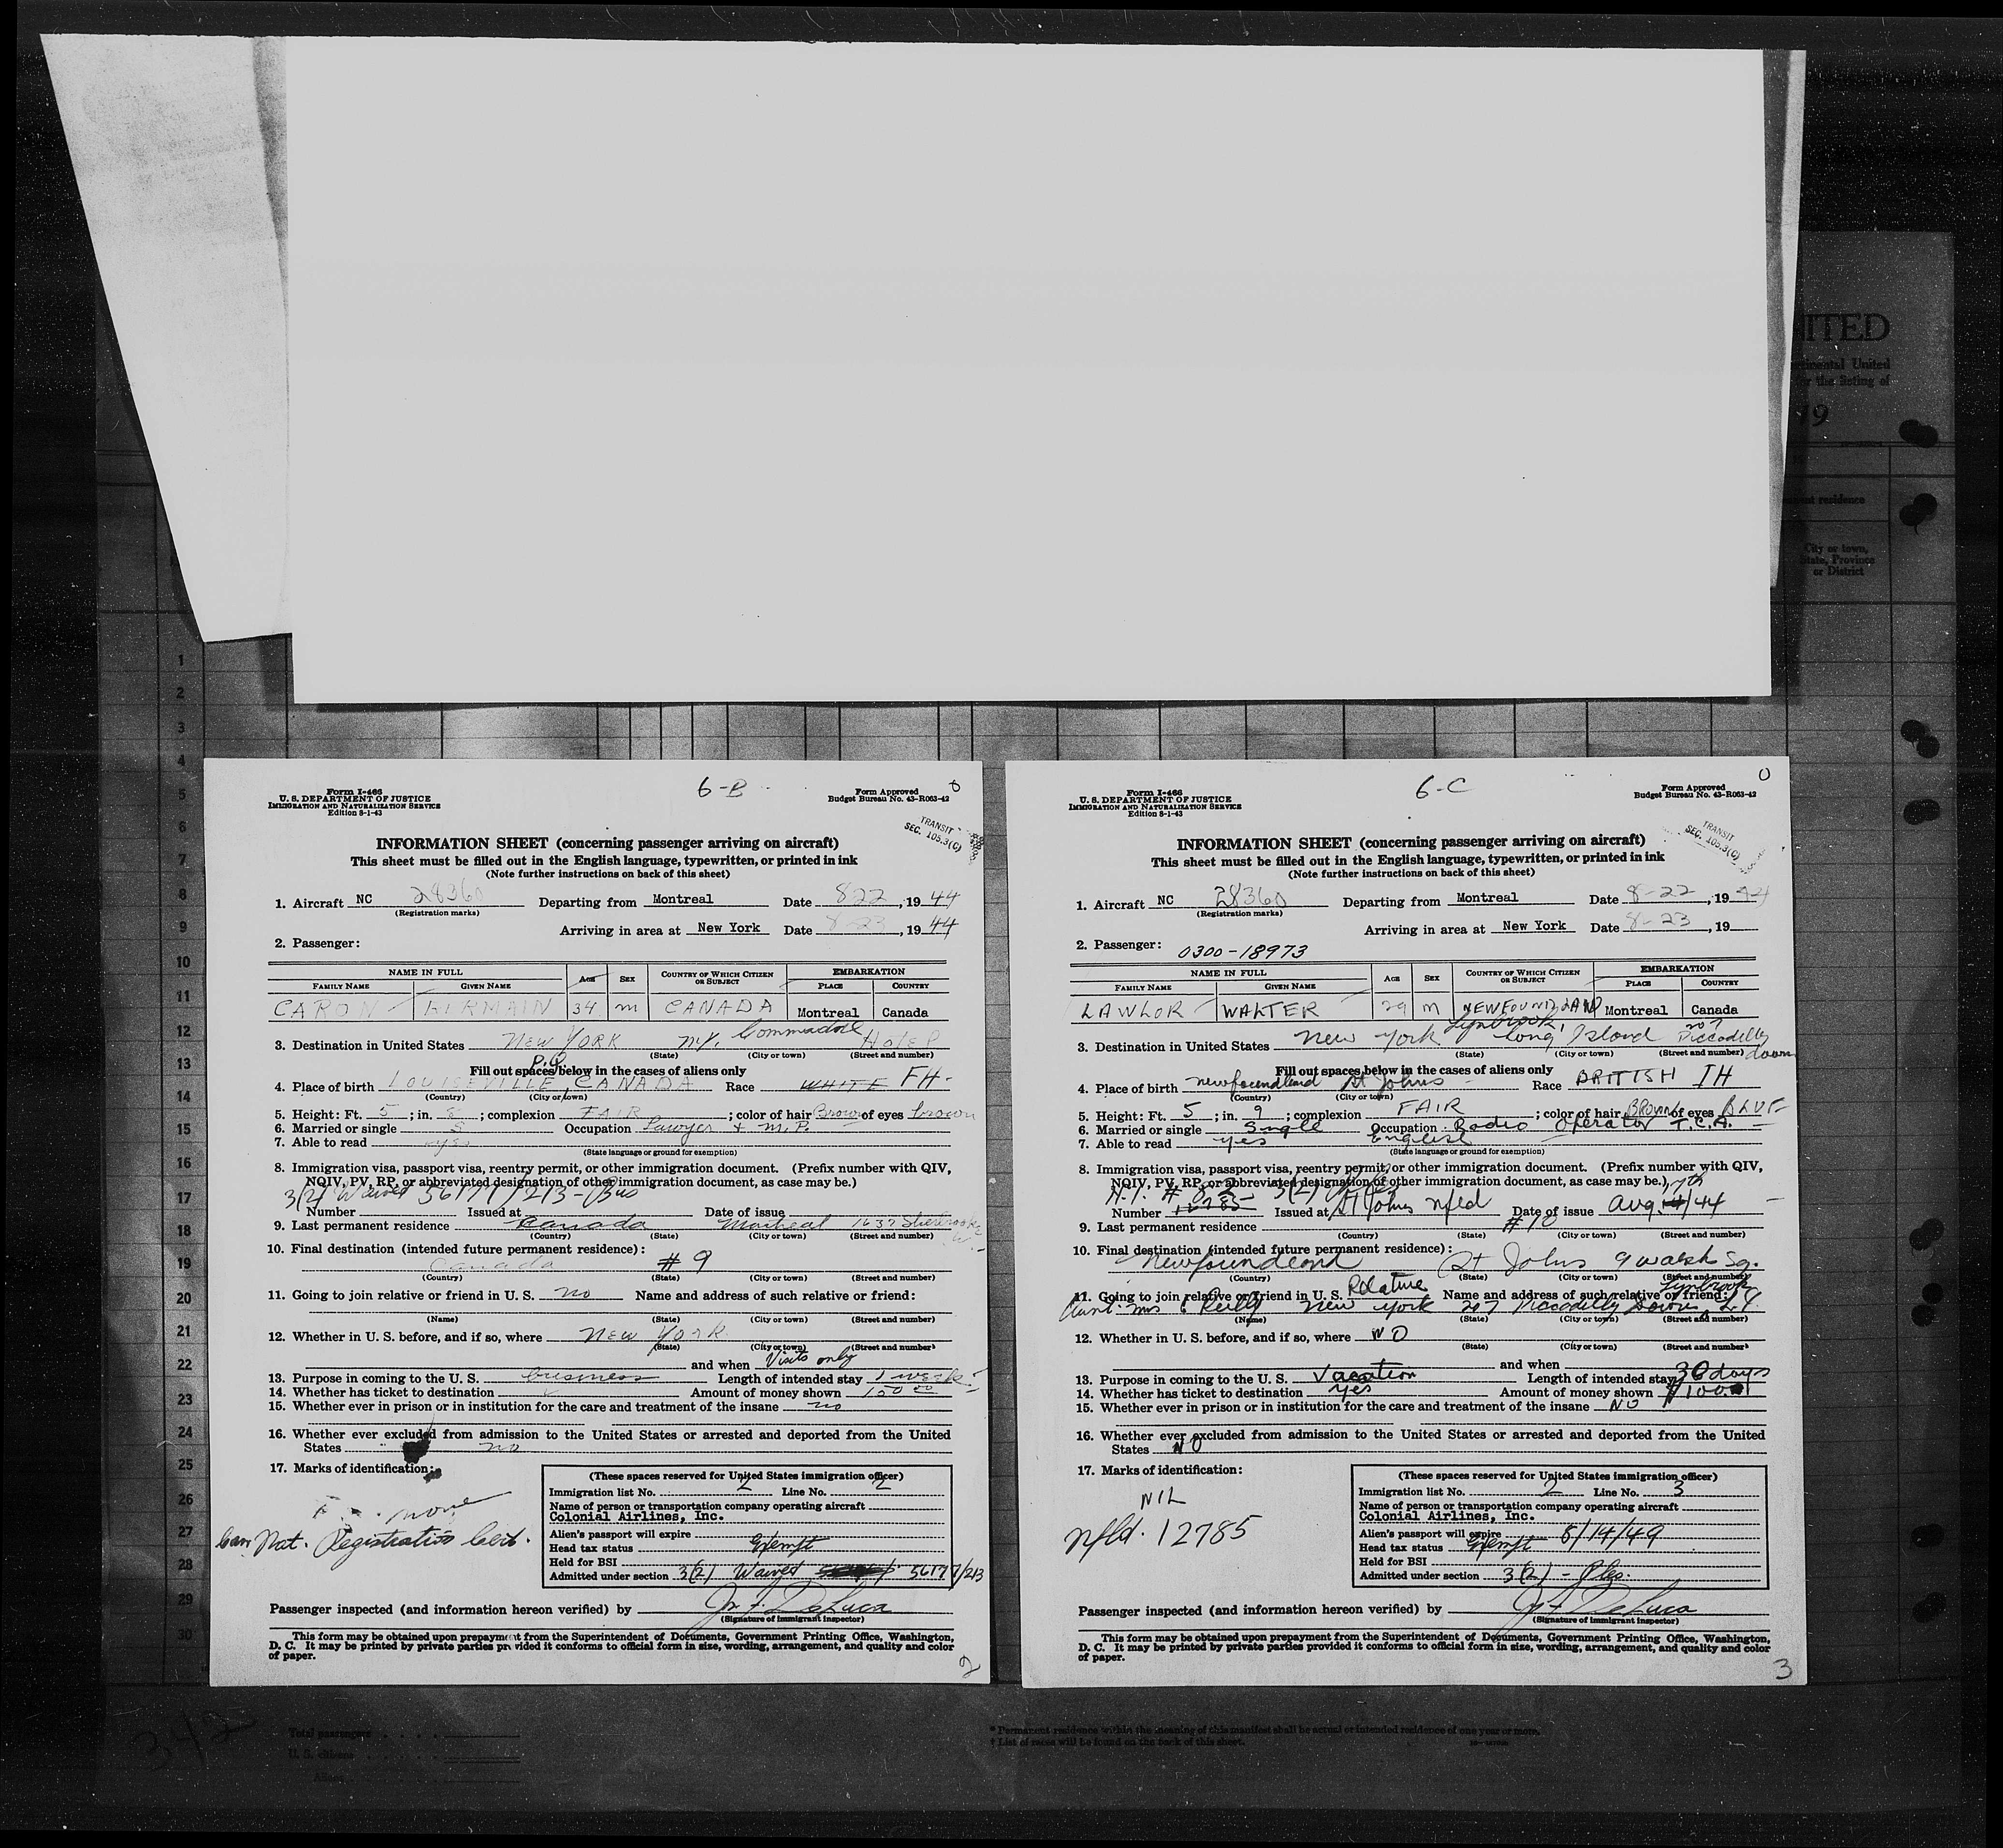 NITED
tinental United
r the listing of
19
nt residence
City or town,
State, Province
or District
1
2
3
4
5
6
7
8
9
10
11
12
13
14
15
16
17
18
19
20
21
22
23
24
25
26
27
28
29
30
Form I-466
U. S. DEPARTMENT OF JUSTICE
IMMIGRATION AND NATURALIZATION SERVICE
Edition 8-1-43
6-B
Form Approved
Budget Bureau No. 43-R063-42
TRANSIT
SEC. 105.3(C)
INFORMATION SHEET (concerning passenger arriving on aircraft)
This sheet must be filled out in the English language, typewritten, or printed in ink
(Note further instructions on back of this sheet)
1. Aircraft NC 28360 Departing from Montreal Date 8 22, 1944
(Registration marks)
Arriving in area at New York Date 8-23, 1944
2. Passenger:
NAME IN FULL AGE SEX COUNTRY OF WHICH CITIZEN OR SUBJECT EMBARKATION
FAMILY NAME GIVEN NAME PLACE COUNTRY
CARON GERMAIN 34 m CANADA Montreal Canada
3. Destination in United States NEW YORK N.Y. Commadore HOTEL
(State) (City or town) (Street and number)
Fill out spaces below in the cases of aliens only
4. Place of birth LOUISEVILLE, P.Q. CANADA Race WHITE FH-
(Country) (City or town)
5. Height: Ft. 5; in. 8; complexion FAIR; color of hair Brown of eyes brown
6. Married or single S Occupation Lawyer + M.P.
7. Able to read yes
(State language or ground for exemption)
8. Immigration visa, passport visa, reentry permit, or other immigration document. (Prefix number with QIV,
NQIV, PV, RP, or abbreviated designation of other immigration document, as case may be.)
3(2) Waived 56177/213-Bus
Number Issued at Date of issue
9. Last permanent residence Canada Montreal 1637 Sherbrooke W.
(Country) (State) (City or town) (Street and number)
10. Final destination (intended future permanent residence):
Canada #9
(Country) (State) (City or town) (Street and number)
11. Going to join relative or friend in U. S. no Name and address of such relative or friend:
(Name) (State) (City or town) (Street and number)
12. Whether in U. S. before, and if so, where NEW YORK
(State) (City or town) (Street and number)
and when Visits only
13. Purpose in coming to the U. S. business Length of intended stay 1 week
14. Whether has ticket to destination Amount of money shown 150 00
15. Whether ever in prison or in institution for the care and treatment of the insane no
16. Whether ever excluded from admission to the United States or arrested and deported from the United
States no
17. Marks of identification:
none
Can Nat. Registration Cert.
(These spaces reserved for United States immigration officer)
Immigration list No. 2 Line No. 2
Name of person or transportation company operating aircraft
Colonial Airlines, Inc.
Alien's passport will expire
Head tax status Exempt
Held for BSI
Admitted under section 3(2) Waived 56177/213
Passenger inspected (and information hereon verified) by Jn F. DeLuca
(Signature of immigrant inspector)
This form may be obtained upon prepayment from the Superintendent of Documents, Government Printing Office, Washington,
D. C. It may be printed by private parties provided it conforms to official form in size, wording, arrangement, and quality and color
of paper.
2
Form I-466
U. S. DEPARTMENT OF JUSTICE
IMMIGRATION AND NATURALIZATION SERVICE
Edition 8-1-43
6-C
0
Form Approved
Budget Bureau No. 43-R063-42
TRANSIT
SEC. 105.3(C)
INFORMATION SHEET (concerning passenger arriving on aircraft)
This sheet must be filled out in the English language, typewritten, or printed in ink
(Note further instructions on back of this sheet)
1. Aircraft NC 28360 Departing from Montreal Date 8-22, 1944
(Registration marks)
Arriving in area at New York Date 8-23, 19
2. Passenger: 0300-18973
NAME IN FULL AGE SEX COUNTRY OF WHICH CITIZEN OR SUBJECT EMBARKATION
FAMILY NAME GIVEN NAME PLACE COUNTRY
LAWLOR WALTER 29 M NEWFOUNDLAND Montreal Canada
3. Destination in United States New York Lynbrook, Long Island 207 Piccadilly down
(State) (City or town) (Street and number)
Fill out spaces below in the cases of aliens only
4. Place of birth Newfoundland St Johns Race BRITISH IH
(Country) (City or town)
5. Height: Ft. 5; in. 9; complexion FAIR; color of hair BROWN of eyes BLUE
6. Married or single Single Occupation Radio Operator T.C.A.
7. Able to read yes English
(State language or ground for exemption)
8. Immigration visa, passport visa, reentry permit, or other immigration document. (Prefix number with QIV,
NQIV, PV, RP, or abbreviated designation of other immigration document, as case may be.)
Number 12785 Issued at St Johns Nfld Date of issue Aug. 17th/44
9. Last permanent residence #10
(Country) (State) (City or town) (Street and number)
10. Final destination (intended future permanent residence):
Newfoundland St Johns 9 Walsh Sq.
(Country) (State) (City or town) (Street and number)
11. Going to join relative or friend in U. S. Relative Name and address of such relative or friend:
Aunt: Mrs C Reilly New York 207 Piccadilly Down Lynbrook L.I.
(Name) (State) (City or town) (Street and number)
12. Whether in U. S. before, and if so, where NO
(State) (City or town) (Street and number)
and when
13. Purpose in coming to the U. S. Vacation Length of intended stay 30 days
14. Whether has ticket to destination yes Amount of money shown $100
15. Whether ever in prison or in institution for the care and treatment of the insane NO
16. Whether ever excluded from admission to the United States or arrested and deported from the United
States NO
17. Marks of identification:
NIL
Nfld. 12785
(These spaces reserved for United States immigration officer)
Immigration list No. 2 Line No. 3
Name of person or transportation company operating aircraft
Colonial Airlines, Inc.
Alien's passport will expire 8/14/49
Head tax status Exempt
Held for BSI
Admitted under section 3(2) - Pls.
Passenger inspected (and information hereon verified) by Jn F. DeLuca
(Signature of immigrant inspector)
This form may be obtained upon prepayment from the Superintendent of Documents, Government Printing Office, Washington,
D. C. It may be printed by private parties provided it conforms to official form in size, wording, arrangement, and quality and color
of paper.
3
342
Total passengers
U. S. citizens
Aliens
* Permanent residence within the meaning of this manifest shall be actual or intended residence of one year or more.
† List of races will be found on the back of this sheet.